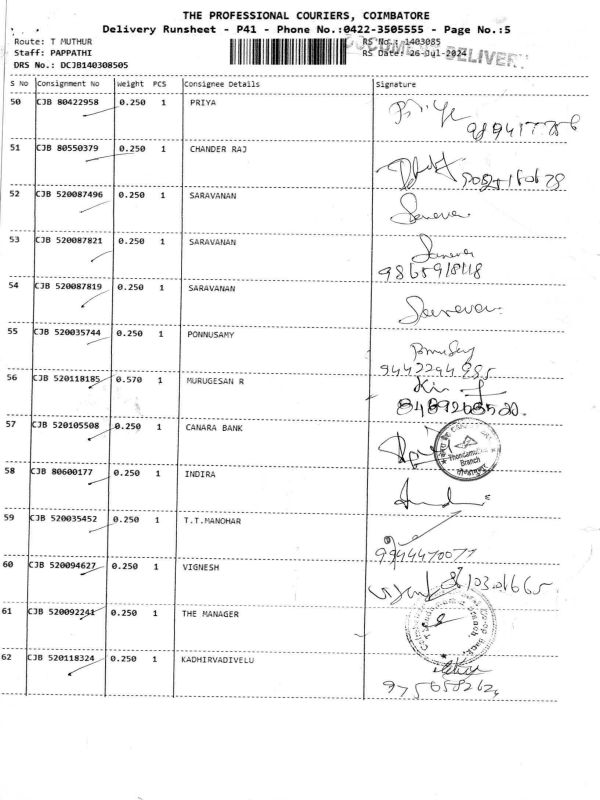 THE PROFESSIONAL COURIERS, COIMBATORE
Delivery Runsheet - P41 - Phone No.:0422-3505555 - Page No.:5
Route: T MUTHUR RS No.: 1403085
Staff: PAPPATHI RS Date: 26-Jul-2024
DRS No.: DCJB140308505
S No Consignment No Weight PCS Consignee Details Signature
50 CJB 80422958 0.250 1 PRIYA
51 CJB 80550379 0.250 1 CHANDER RAJ
52 CJB 520087496 0.250 1 SARAVANAN
53 CJB 520087821 0.250 1 SARAVANAN
54 CJB 520087819 0.250 1 SARAVANAN
55 CJB 520035744 0.250 1 PONNUSAMY
9442294985
56 CJB 520118185 0.570 1 MURUGESAN R
57 CJB 520105508 0.250 1 CANARA BANK
Branch
58 CJB 80600177 0.250 1 INDIRA
59 CJB 520035452 0.250 1 T.T.MANOHAR
9944470077
60 CJB 520094627 0.250 1 VIGNESH
61 CJB 520092241 0.250 1 THE MANAGER
62 CJB 520118324 0.250 1 KADHIRVADIVELU